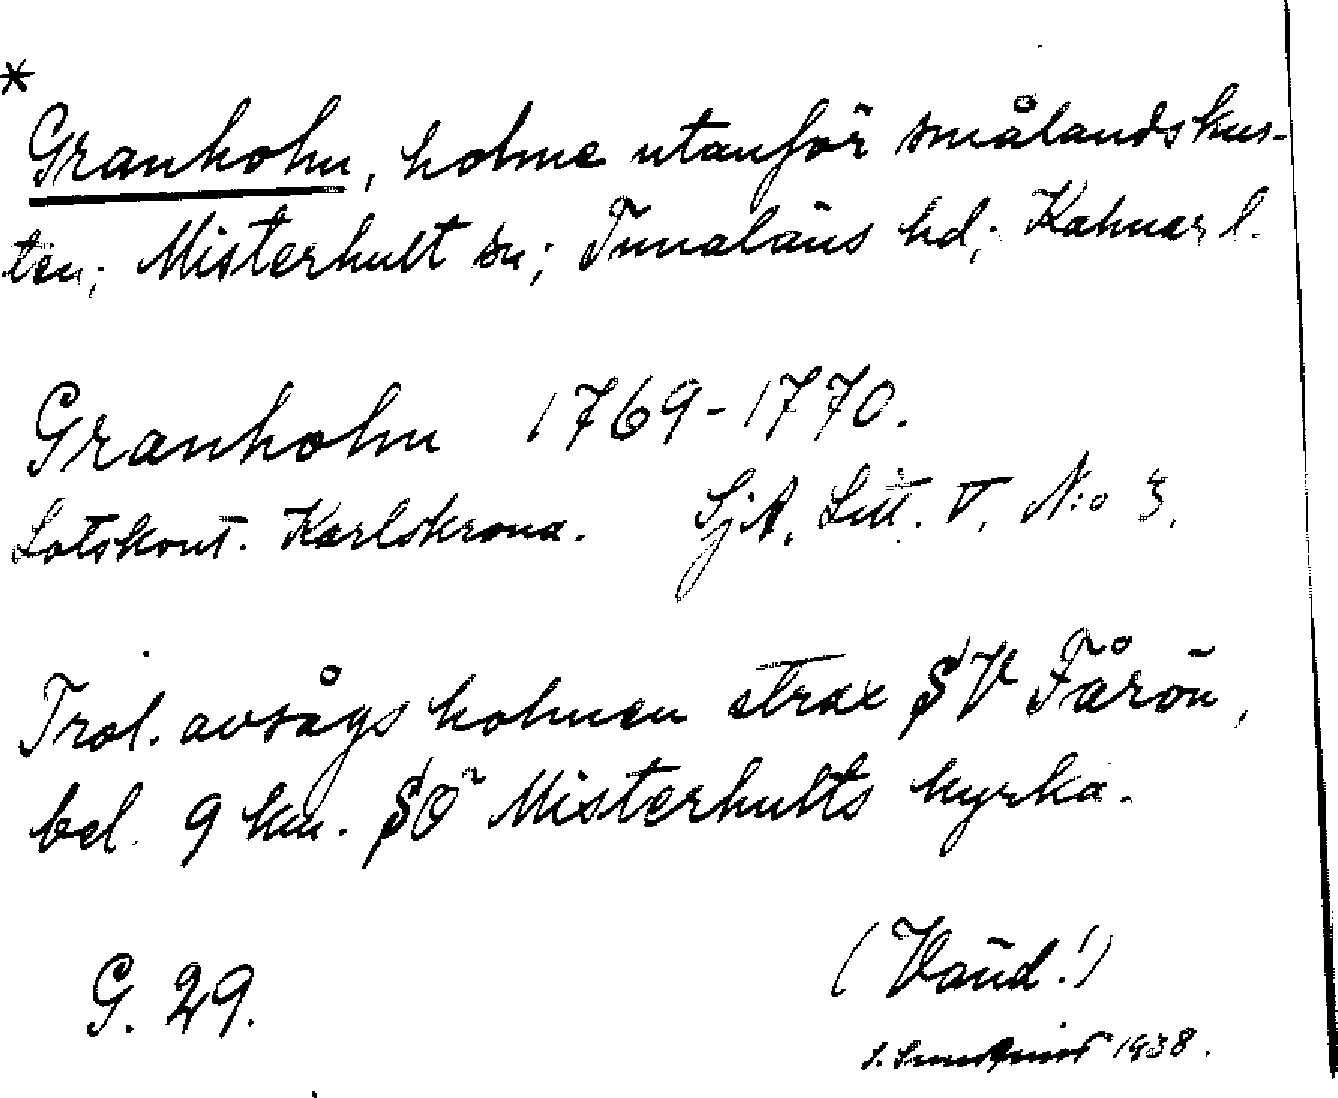 *
Granholm, holme utanför smålandskus-
ten; Misterhult sn; Tunaläns hd; Kalmar l.
Granholm 1769-1770.
Lotskont. Karlskrona. SjA, Litt. V. N:o 3.
Trol. avsågs holmen strax SV Fårön,
bel. 9 km. SÖ Misterhults kyrka.
G. 29.
(Vänd!)
1938.